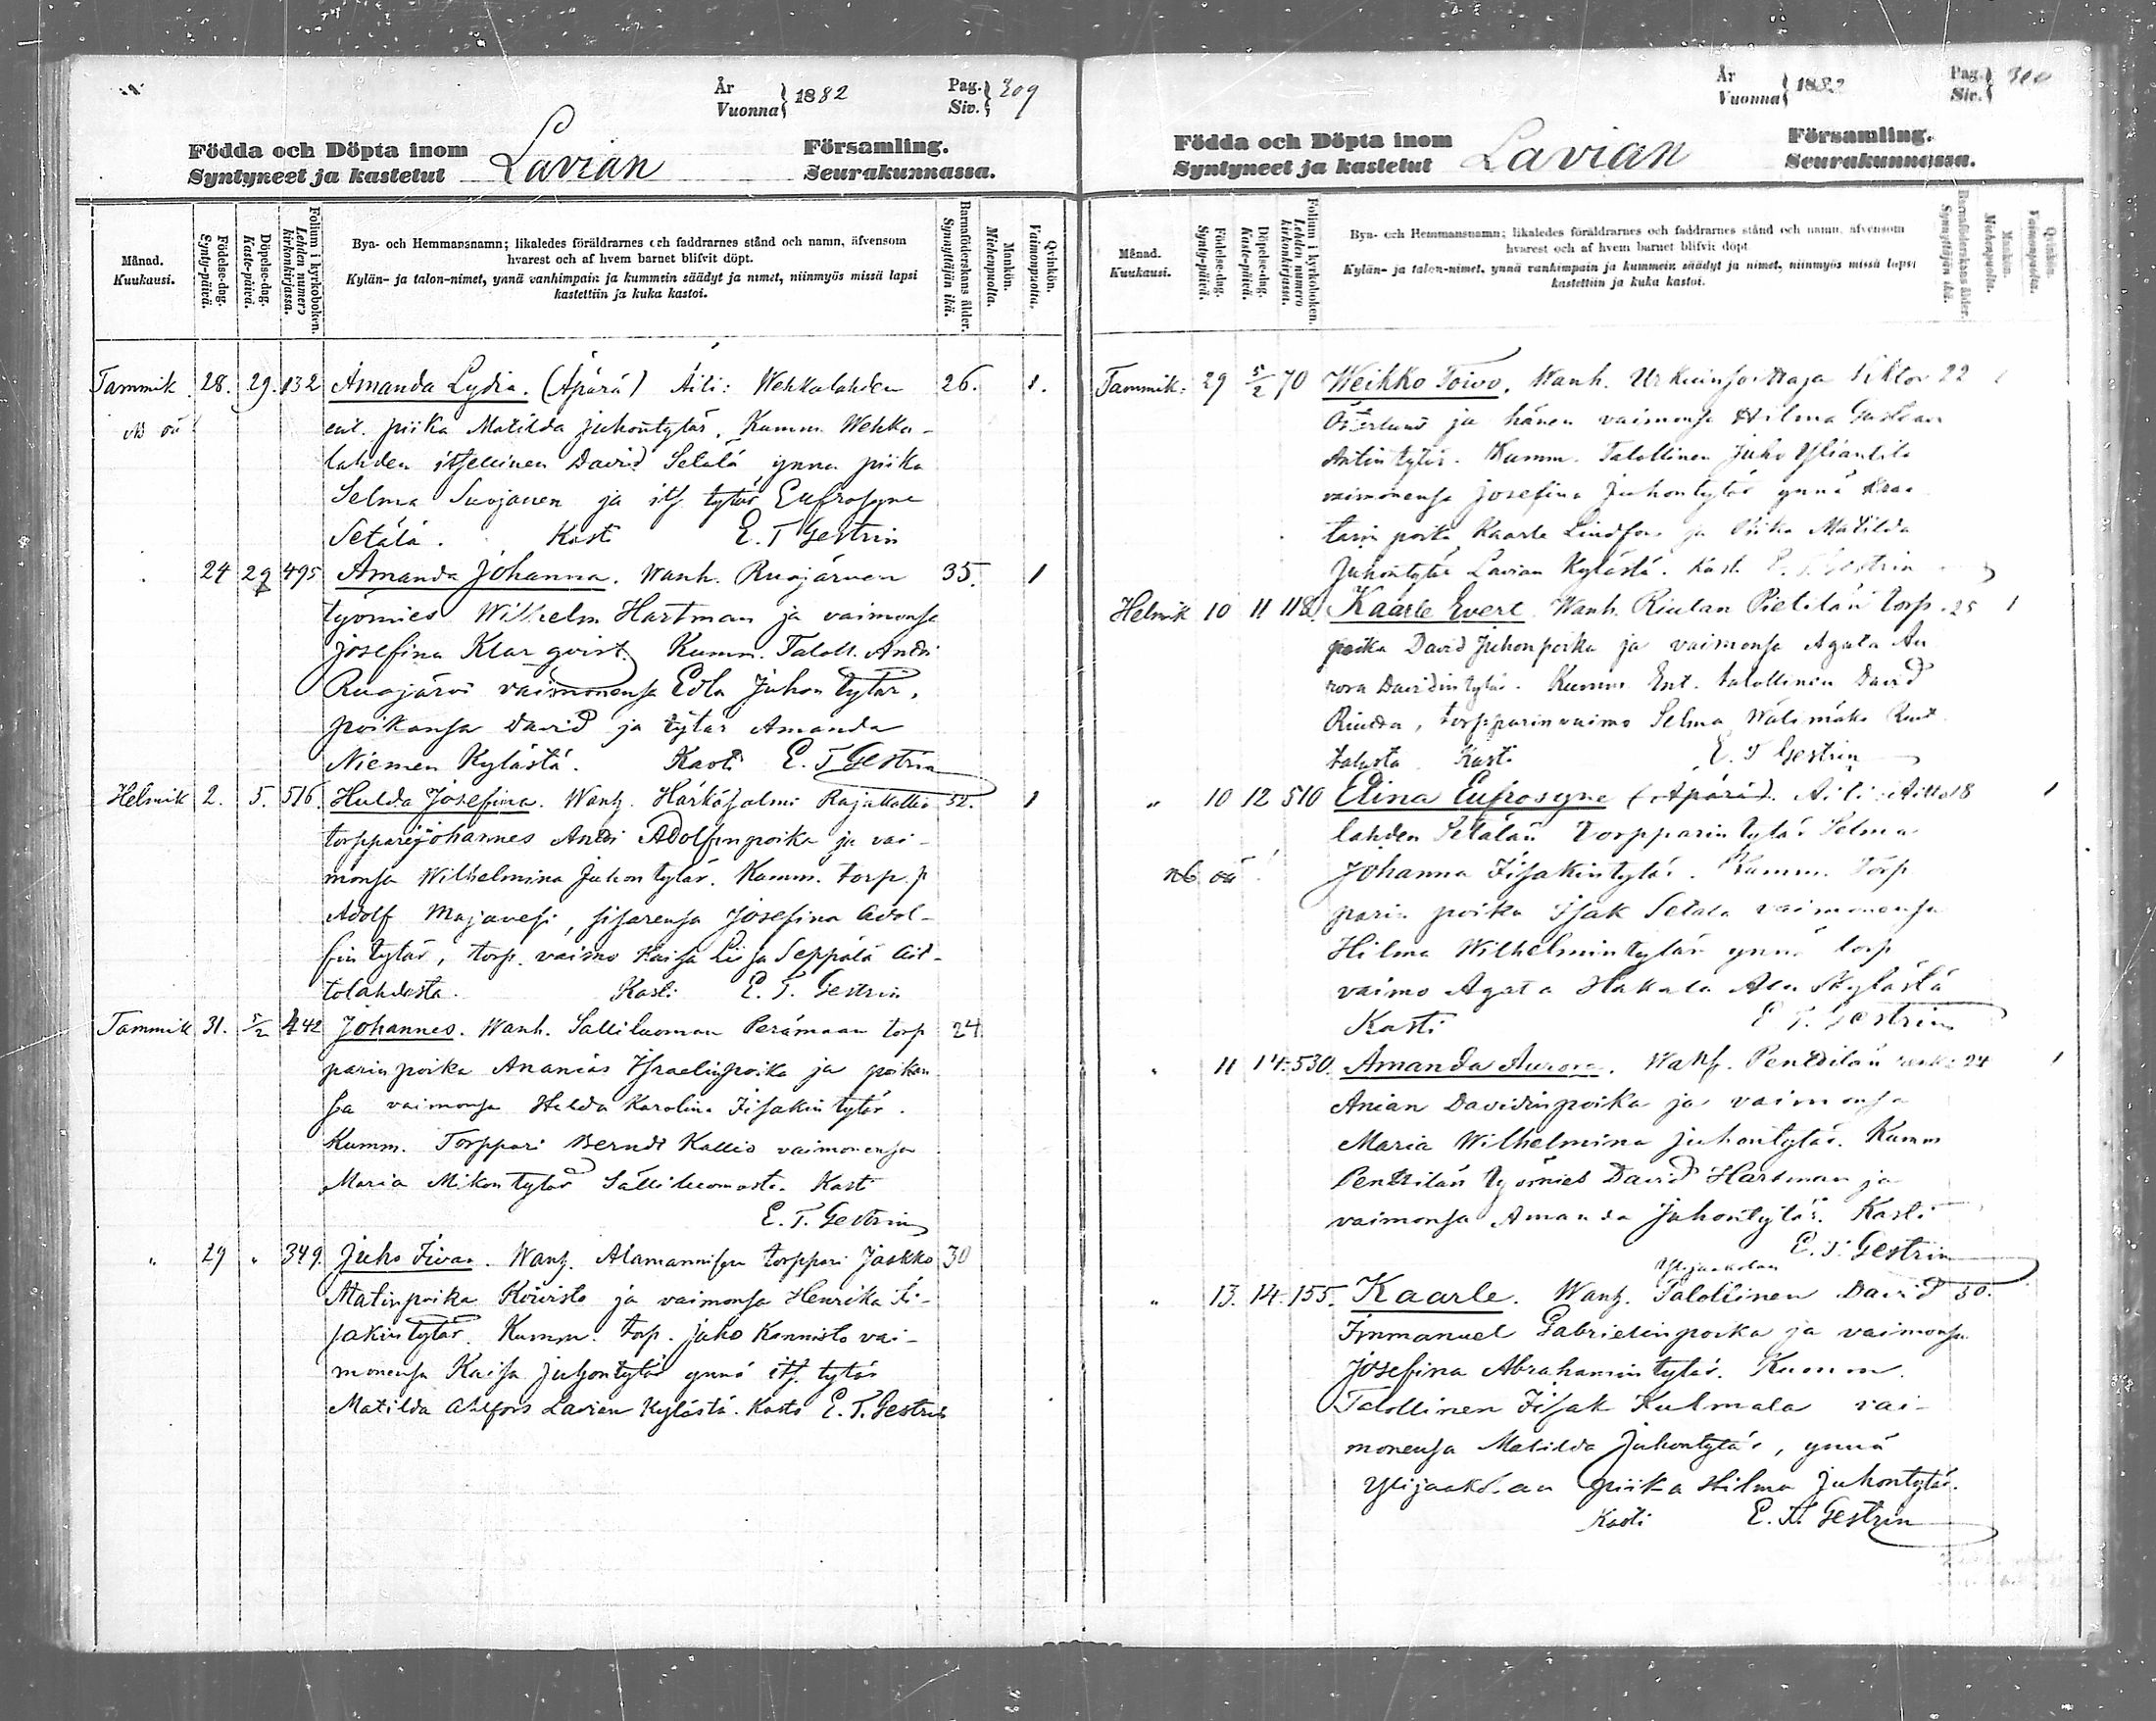 År
Vuonna } 1882
Pag.
Siv. } 309
Födda och Döpta inom
Syntyneet ja kastetut
Lavian
Församling.
Seurakunnassa.
Månad.
Kuukausi.
Födelse-dag.
Synty-päivä.
Döpelse-dag.
Kaste-päivä.
Folium i kyrkoboken.
Lehden numero kirkonkirjassa.
Bya- och Hemmansnamn; likaledes föräldrarnes och faddrarnes stånd och namn, äfvensom
hvarest och af hvem barnet blifvit döpt.
Kylän- ja talon-nimet, ynnä vanhimpain ja kummein säädyt ja nimet, niinmyös missä lapsi
kastettiin ja kuka kastoi.
Barnaföderskans ålder.
Synnyttäjän ikä.
Mankön.
Miehenpuolta.
Qvinkön.
Vaimonpuolta.
Tammik. 28. 29. 132 Amanda Lydia. (Äpärä) Äiti: Wehkalahden 26. 1.
ent. piika Matilda Juhontytär. Kumm. Wehka-
lahden itsellinen David Setälä ynnä piika
Selma Suojanen ja its. tytär Eufrosyne
Setälä. Kasti E. T Gestrin
24 29 495 Amanda Johanna. Wanh. Ruojärven 35. 1
työmies Wilhelm Hartman ja vaimonsa
Josefina Klarqvist. Kumm. Taloll. Anti
Ruojärvi vaimonensa Edla Juhontytär,
poikansa David ja tytär Amanda
Niemen Kylästä. Kasti E. T Gestrin
Helmik 2. 5. 516. Hulda Josefina. Wanh. Härkäsalmi Rajakallio 32. 1
torppari Johannes Antti Adolfinpoika ja vai-
monsa Wilhelmina Juhontytär. Kumm. torp. p
Adolf Majavesi, sisarensa Josefina Adol-
fintytär, torp. vaimo Kaisa Liisa Seppälä Ait-
tolahdesta. Kasti E. T. Gestrin
Tammik 31. 5/2 442 Johannes. Wanh. Salliluoman Perämaan torp 24
parinpoika Ananias Israelinpoika ja poikan
sa vaimonsa Hilda Karolina Iisakintytär.
Kumm. Torppari Berndt Kallio vaimonensa
Maria Mikontytär Salliluomasta. Kasti
E. T. Gestrin
" 29 " 349. Juho Iivar. Wanh. Alamannisen torppari Jaakko 30
Matinpoika Koivisto ja vaimonsa Henrika Ii-
sakintytär. Kumm. torp. Juho Kannisto vai-
monensa Kaisa Juhontytär ynnä its. tytär
Matilda Ahlfors Lavian Kylästä. Kasti E. T. Gestrin
År
Vuonna } 1882
Pag.
Siv. }
Födda och Döpta inom
Syntyneet ja kastetut
Lavian
Församling.
Seurakunnassa.
Månad.
Kuukausi.
Födelse-dag.
Synty-päivä.
Döpelse-dag.
Kaste-päivä.
Folium i kyrkoboken.
Lehden numero kirkonkirjassa.
Bya- och Hemmansnamn; likaledes föräldrarnes och faddrarnes stånd och namn, äfvensom
hvarest och af hvem barnet blifvit döpt
Kylän- ja talon-nimet, ynnä vanhimpain ja kummein säädyt ja nimet, niinmyös missä lapsi
kastettiin ja kuka kastoi.
Barnaföderskans ålder.
Synnyttäjän ikä.
Mankön.
Miehenpuolta.
Qvinkön.
Vaimonpuolta.
Tammik. 29 5/2 70 Weikko Toivo. Wanh. Urkuinsoittaja Viktor 22 1
Österlund ja hänen vaimonsa Hilma Gustaava
Antintytär. Kumm. Talollinen Juho Yliantila
vaimonensa Josefina Juhontytär ynnä
poika Kaarle Lindfors ja Piika Matilda
Juhontytär Lavian Kylästä. Kasti E. T. Gestrin
Helmik 10 11 118. Kaarle Evert. Wanh. Riutan Pietilän torp. 25 1
poika David Juhonpoika ja vaimonsa Agata Au
rora Davidintytär. Kumm. Ent. talollinen David
Riutta, torpparinvaimo Selma Wälimäki Riut
talasta Kasti E. T Gestrin
" 10 12 510 Elina Eufrosyne (Äpärä). Äiti: Aitto 18 1
lahden Setälän torpparintytär Selma
Johanna Iisakintytär. Kumm. Torp
parin poika Isak Setälä vaimonensa
Hilma Wilhelmintytär ynnä torp
vaimo Agata Hakala Alu Kylästä
Kasti E T. Gestrin
" 11 14. 530. Amanda Aurora. Wanh. Penttilän renki 24 1
Anian Davidinpoika ja vaimonsa
Maria Wilhelmina Juhontytär. Kumm
Penttilän työmies David Hartman ja
vaimonsa Amanda Juhontytär. Kasti
E. T. Gestrin
Ylijaakolan
" 13. 14. 155. Kaarle. Wanh. Talollinen David 30.
Immanuel Gabrielinpoika ja vaimonsa
Josefina Abrahamintytär. Kumm.
Talollinen Iisak Kulmala vai-
monensa Matilda Juhontytär, ynnä
Ylijaakolan piika Hilma Juhontytär.
Kasti E. T. Gestrin